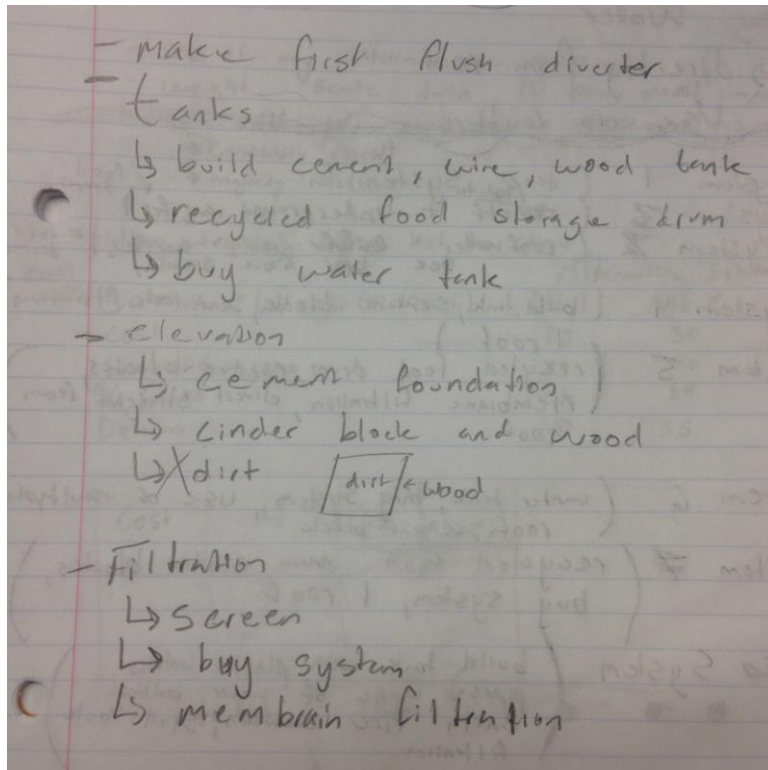 - make first flush diverter
- tanks
↳ build cement, wire, wood tank
↳ recycled food storage drum
↳ buy water tank
- elevation
↳ cement foundation
↳ cinder block and wood
↳ X dirt dirt ← wood
- Filtration
↳ screen
↳ buy system
↳ membrain filtration